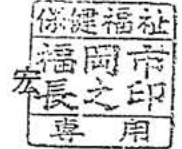 宏
保健福祉
福岡市
長之印
専用